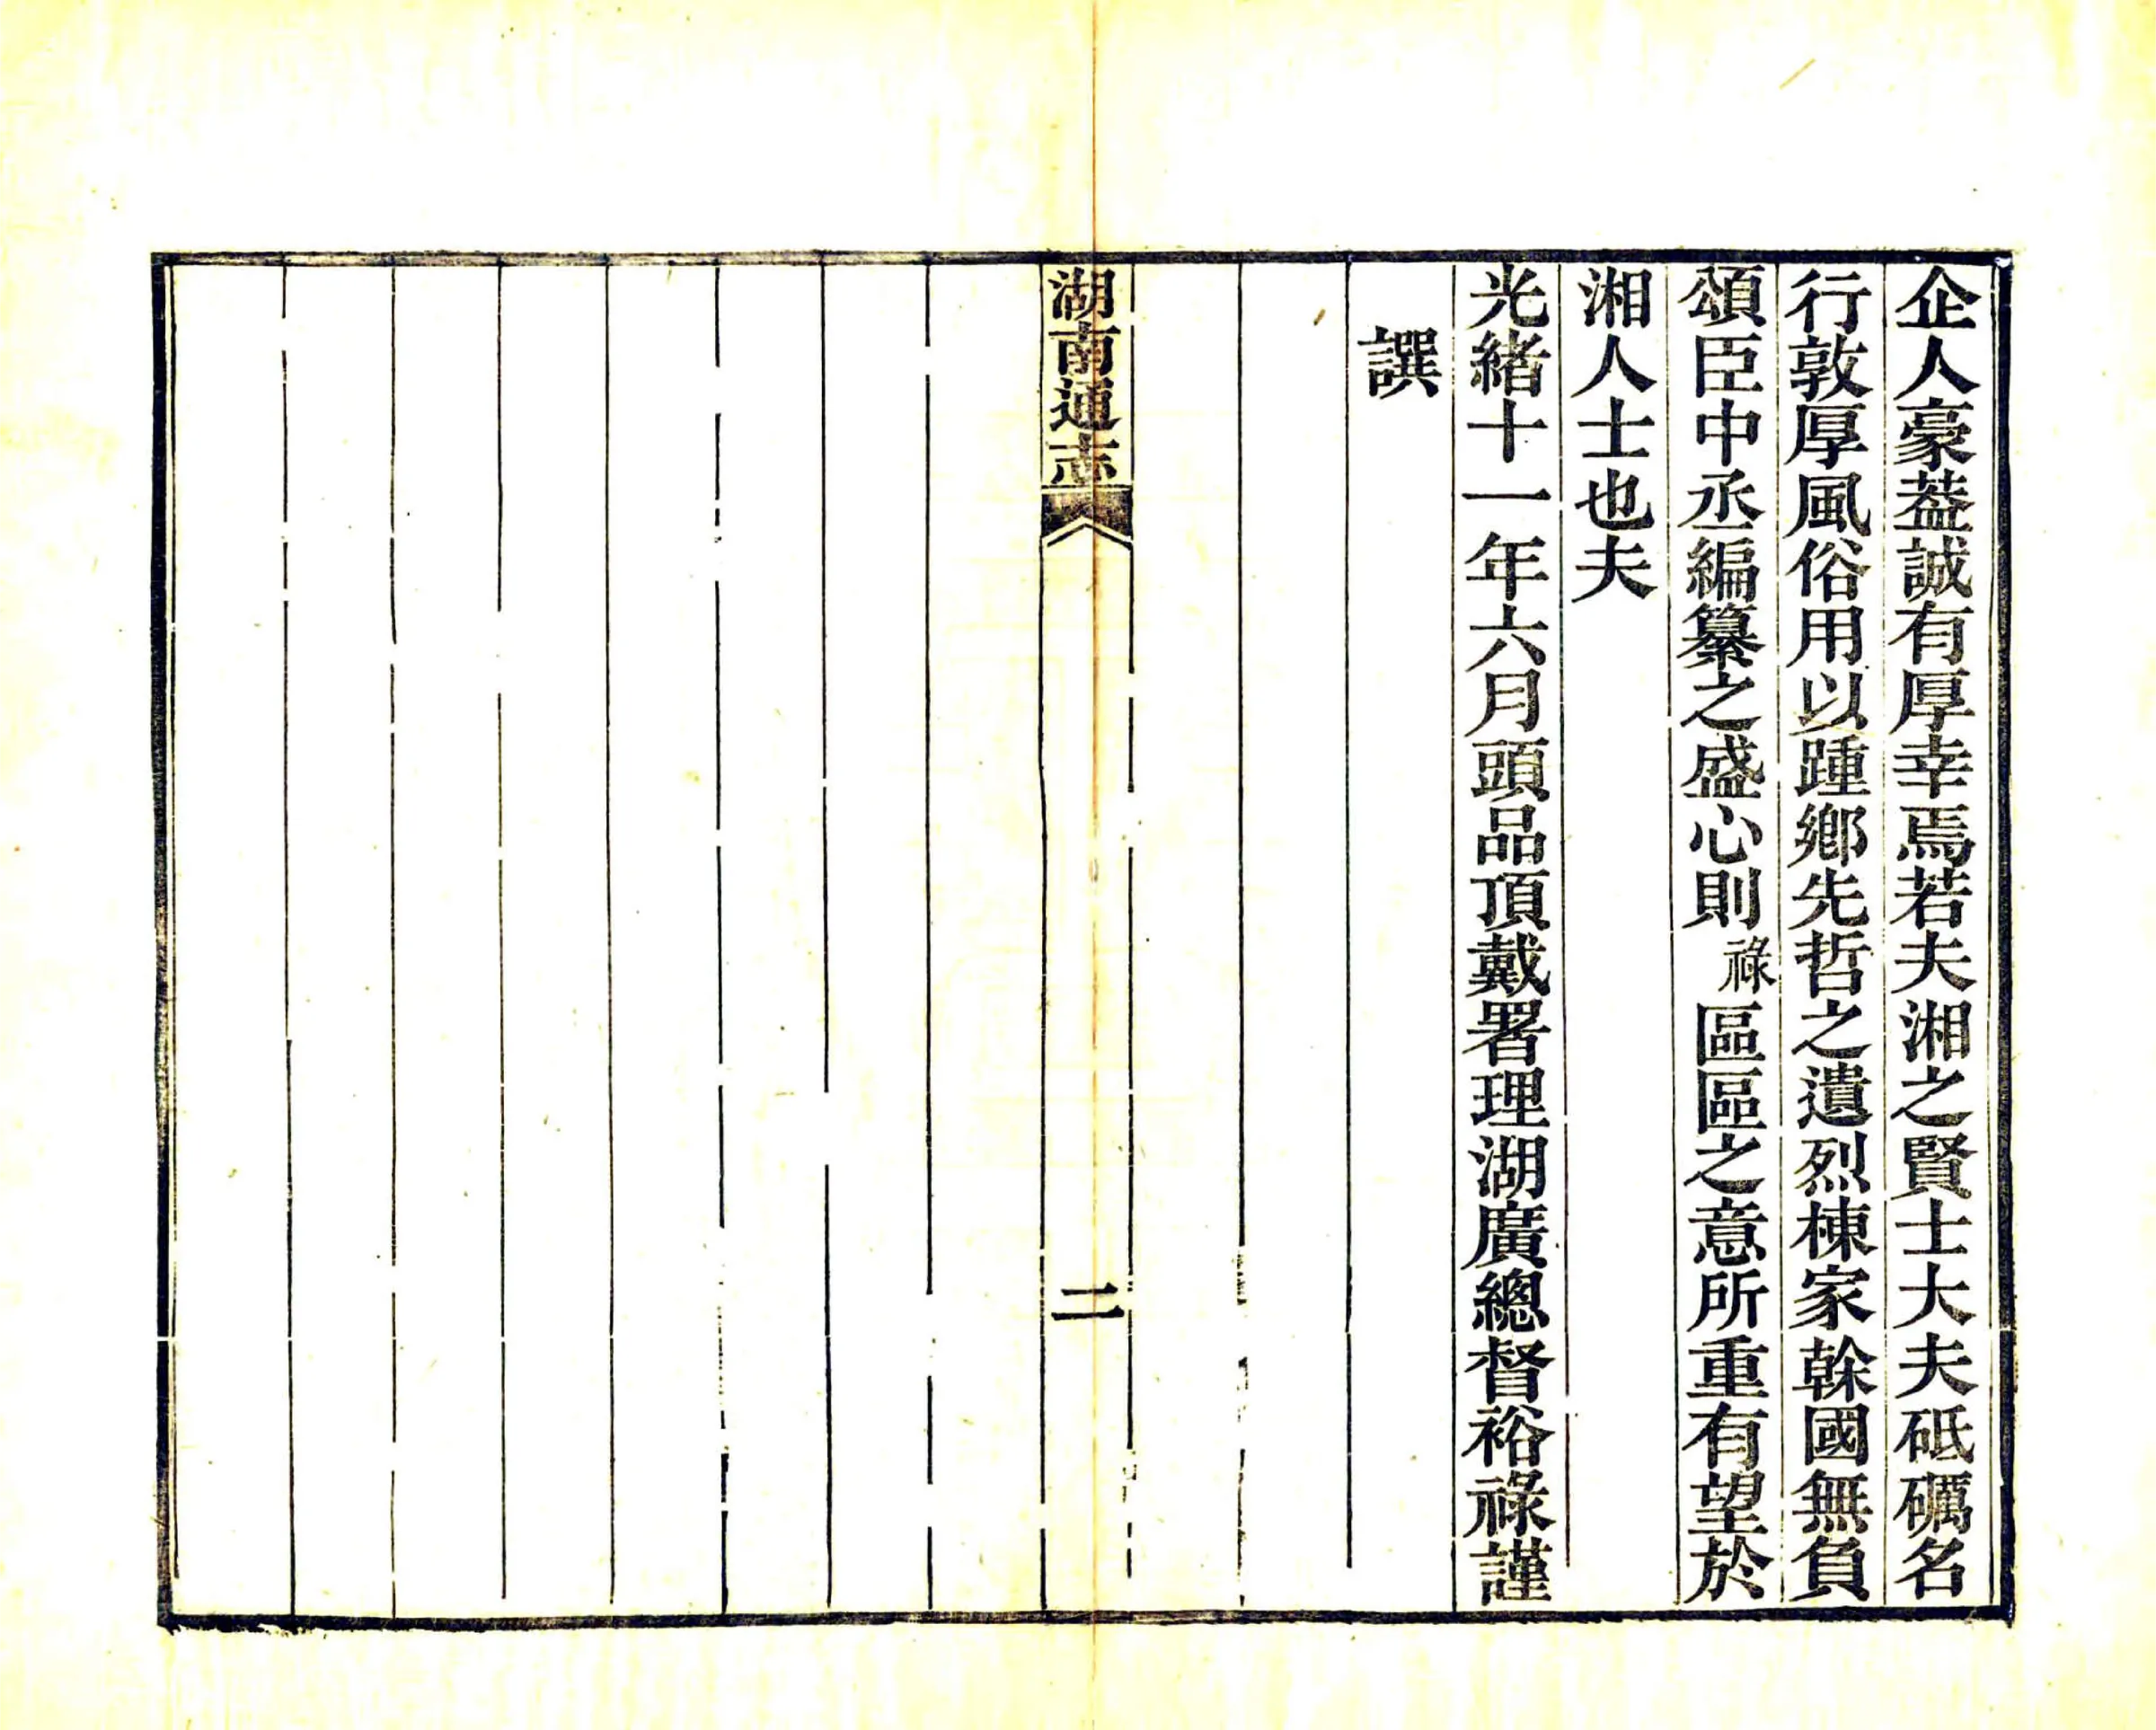 企人豪葢誠有厚幸焉若夫湘之賢士大夫砥礪名
行敦厚風俗用以踵鄉先哲之遺烈棟家榦國無負
頌臣中丞編纂之盛心則祿區區之意所重有望於
湘人士也夫
光緒十一年六月頭品頂戴署理湖廣總督裕祿謹
譔
湖南通志
二